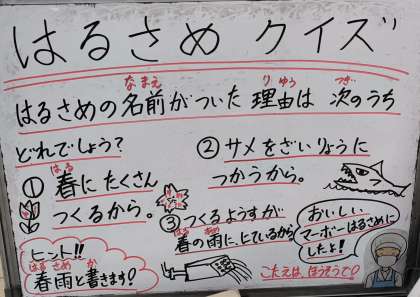 はるさめ クイズ
はるさめの名前がついた 理由は 次のうち
なまえ りゆう つぎ
どれでしょう？
① 春に たくさん
はる
つくるから。
② サメをざいりょうに
つかうから。
③ つくるようすが
春の雨に、にているから。
はる あめ
ヒント!!
はる さめ か
春雨と書きます!
おいしい
マーボーはるさめに
したよ!
こたえは、ほうそうで!